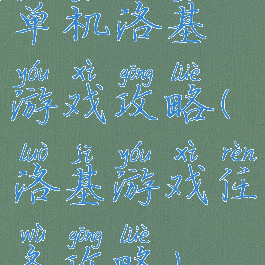 单机洛基
yóu xì gōng lüè
游戏攻略(
luò jī yóu xì rèn
洛基游戏任
wù gōng lüè
务攻略)